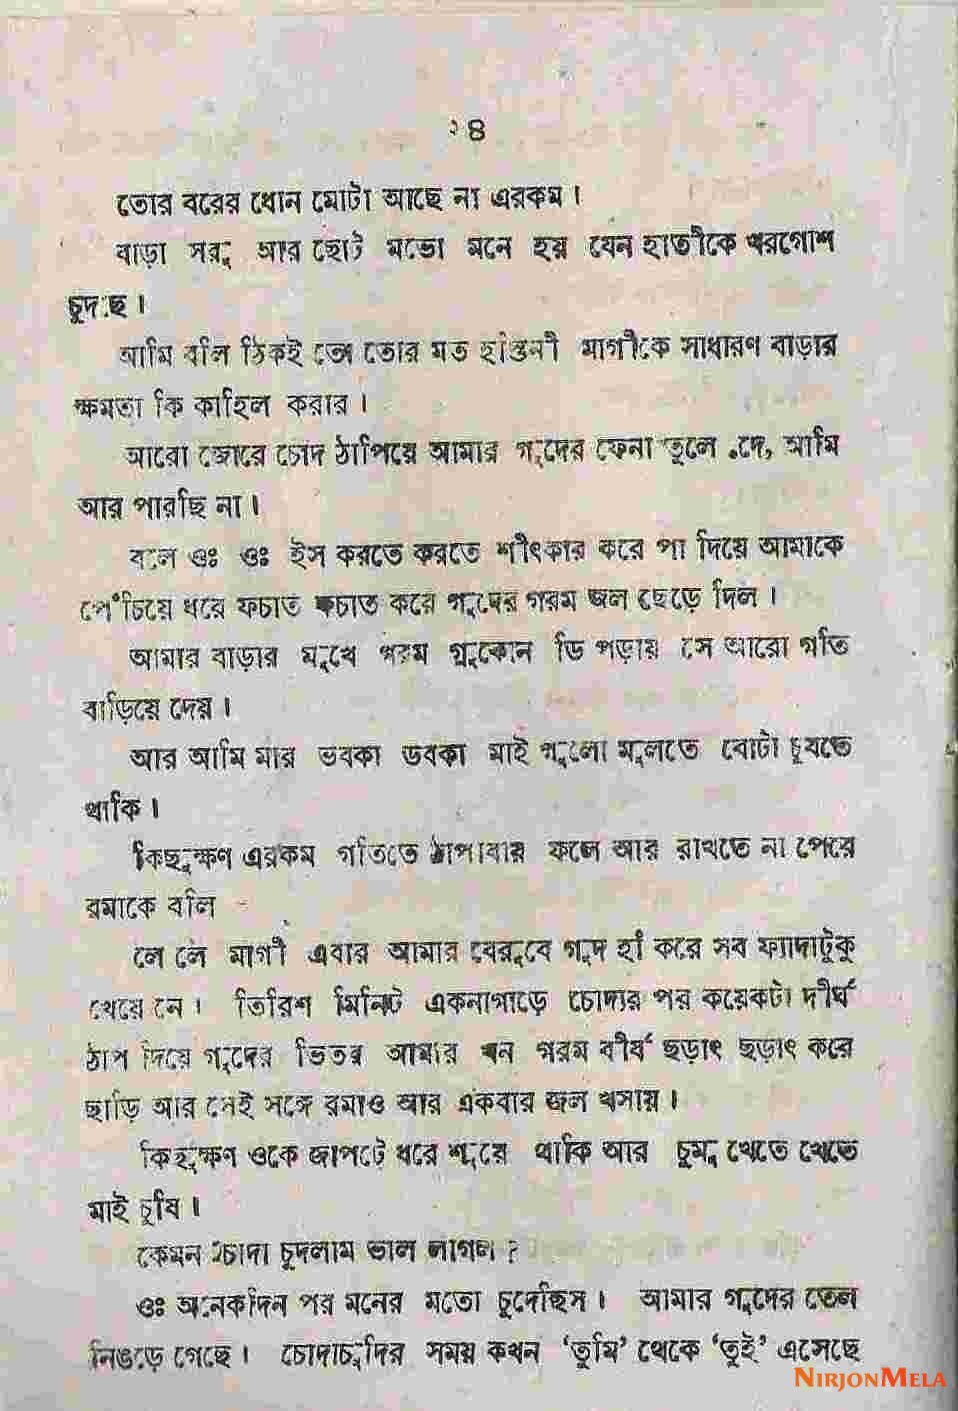 ২৪
তোর বরের ধোন মোটা আছে না এরকম।
বাড়া সরু আর ছোট মতো মনে হয় যেন হাতীকে খরগোশ
চুদছে।
আমি বলি ঠিকই তো তোর মত হস্তিনী মাগীকে সাধারণ বাড়ার
ক্ষমতা কি কাহিল করার।
আরো জোরে চোদ ঠাপিয়ে আমার গুদের ফেনা তুলে দে, আমি
আর পারছি না।
বলে ওঃ ওঃ ইস করতে করতে শীৎকার করে পা দিয়ে আমাকে
পেঁচিয়ে ধরে ফচাত ফচাত করে গুদের গরম জল ছেড়ে দিল।
আমার বাড়ার মুখে গরম গ্লুকোন ডি পড়ায় সে আরো গতি
বাড়িয়ে দেয়।
আর আমি মার ভবকা ডবকা মাই গুলো মুলতে বোটা চুষতে
থাকি।
কিছুক্ষণ এরকম গতিতে ঠাপাবার ফলে আর রাখতে না পেরে
রমাকে বলি -
লে লে মাগী এবার আমার বেরুবে গুদ হাঁ করে সব ফ্যাদাটুকু
খেয়ে নে। তিরিশ মিনিট একনাগাড়ে চোদার পর কয়েকটা দীর্ঘ
ঠাপ দিয়ে গুদের ভিতর আমার ঘন গরম বীর্য ছড়াৎ ছড়াৎ করে
ছাড়ি আর সেই সঙ্গে রমাও আর একবার জল খসায়।
কিছুক্ষণ ওকে জাপটে ধরে শুয়ে থাকি আর চুমু খেতে খেতে
মাই চুষি।
কেমন চোদা চুদলাম ভাল লাগল ?
ওঃ অনেকদিন পর মনের মতো চুদেছিস। আমার গুদের তেল
নিঙড়ে গেছে। চোদাচুদির সময় কখন ‘তুমি’ থেকে ‘তুই’ এসেছে
NIRJONMELA